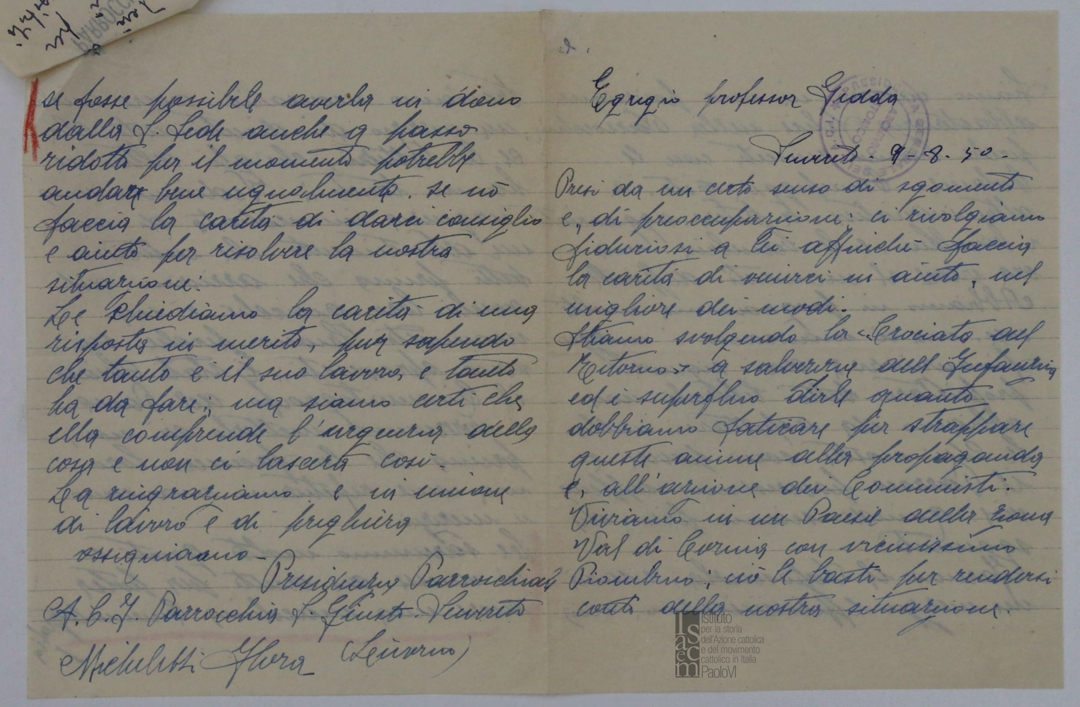 Egregio professor Gedda
Suvereto - 9-8.50.
Presi da un certo senso di sgomento
e, di preoccupazione: ci rivolgiamo
fiduciosi a Lei affinchè faccia
la carità di venirci in aiuto, nel
migliore dei modi.
Stiamo svolgendo la "Crociata del
Ritorno" a salvezza dell'Infanzia
ed è superfluo dirle quanto
dobbiamo faticare per strappare
queste anime alla propaganda
e, all'azione dei Comunisti.
Viviamo in un Paese della zona
Val di Cornia con vicinissimo
Piombino; ciò le basti per rendersi
conto della nostra situazione.
se fosse possibile averla in dono
dalla S. Sede anche a passo
ridotto per il momento potrebbe
andare bene ugualmente. se nò
faccia la carità di darci consiglio
e aiuto per risolvere la nostra
situazione.
Le chiediamo la carità di una
risposta in merito, pur sapendo
che tanto è il suo lavoro, e tanto
ha da fare; ma siamo certi che,
ella comprende l'urgenza della
cosa e non ci lascerà così.
La ringraziamo e in unione
di lavoro e di preghiera
ossequiamo -
Presidenza Parrocchiale
A.C.I. Parrocchia S. Giusto Suvereto
(Livorno)
Micheletti Flora
PARROCCH
Isacem
Istituto
per la storia
dell'Azione cattolica
e del movimento
cattolico in Italia
PaoloVI